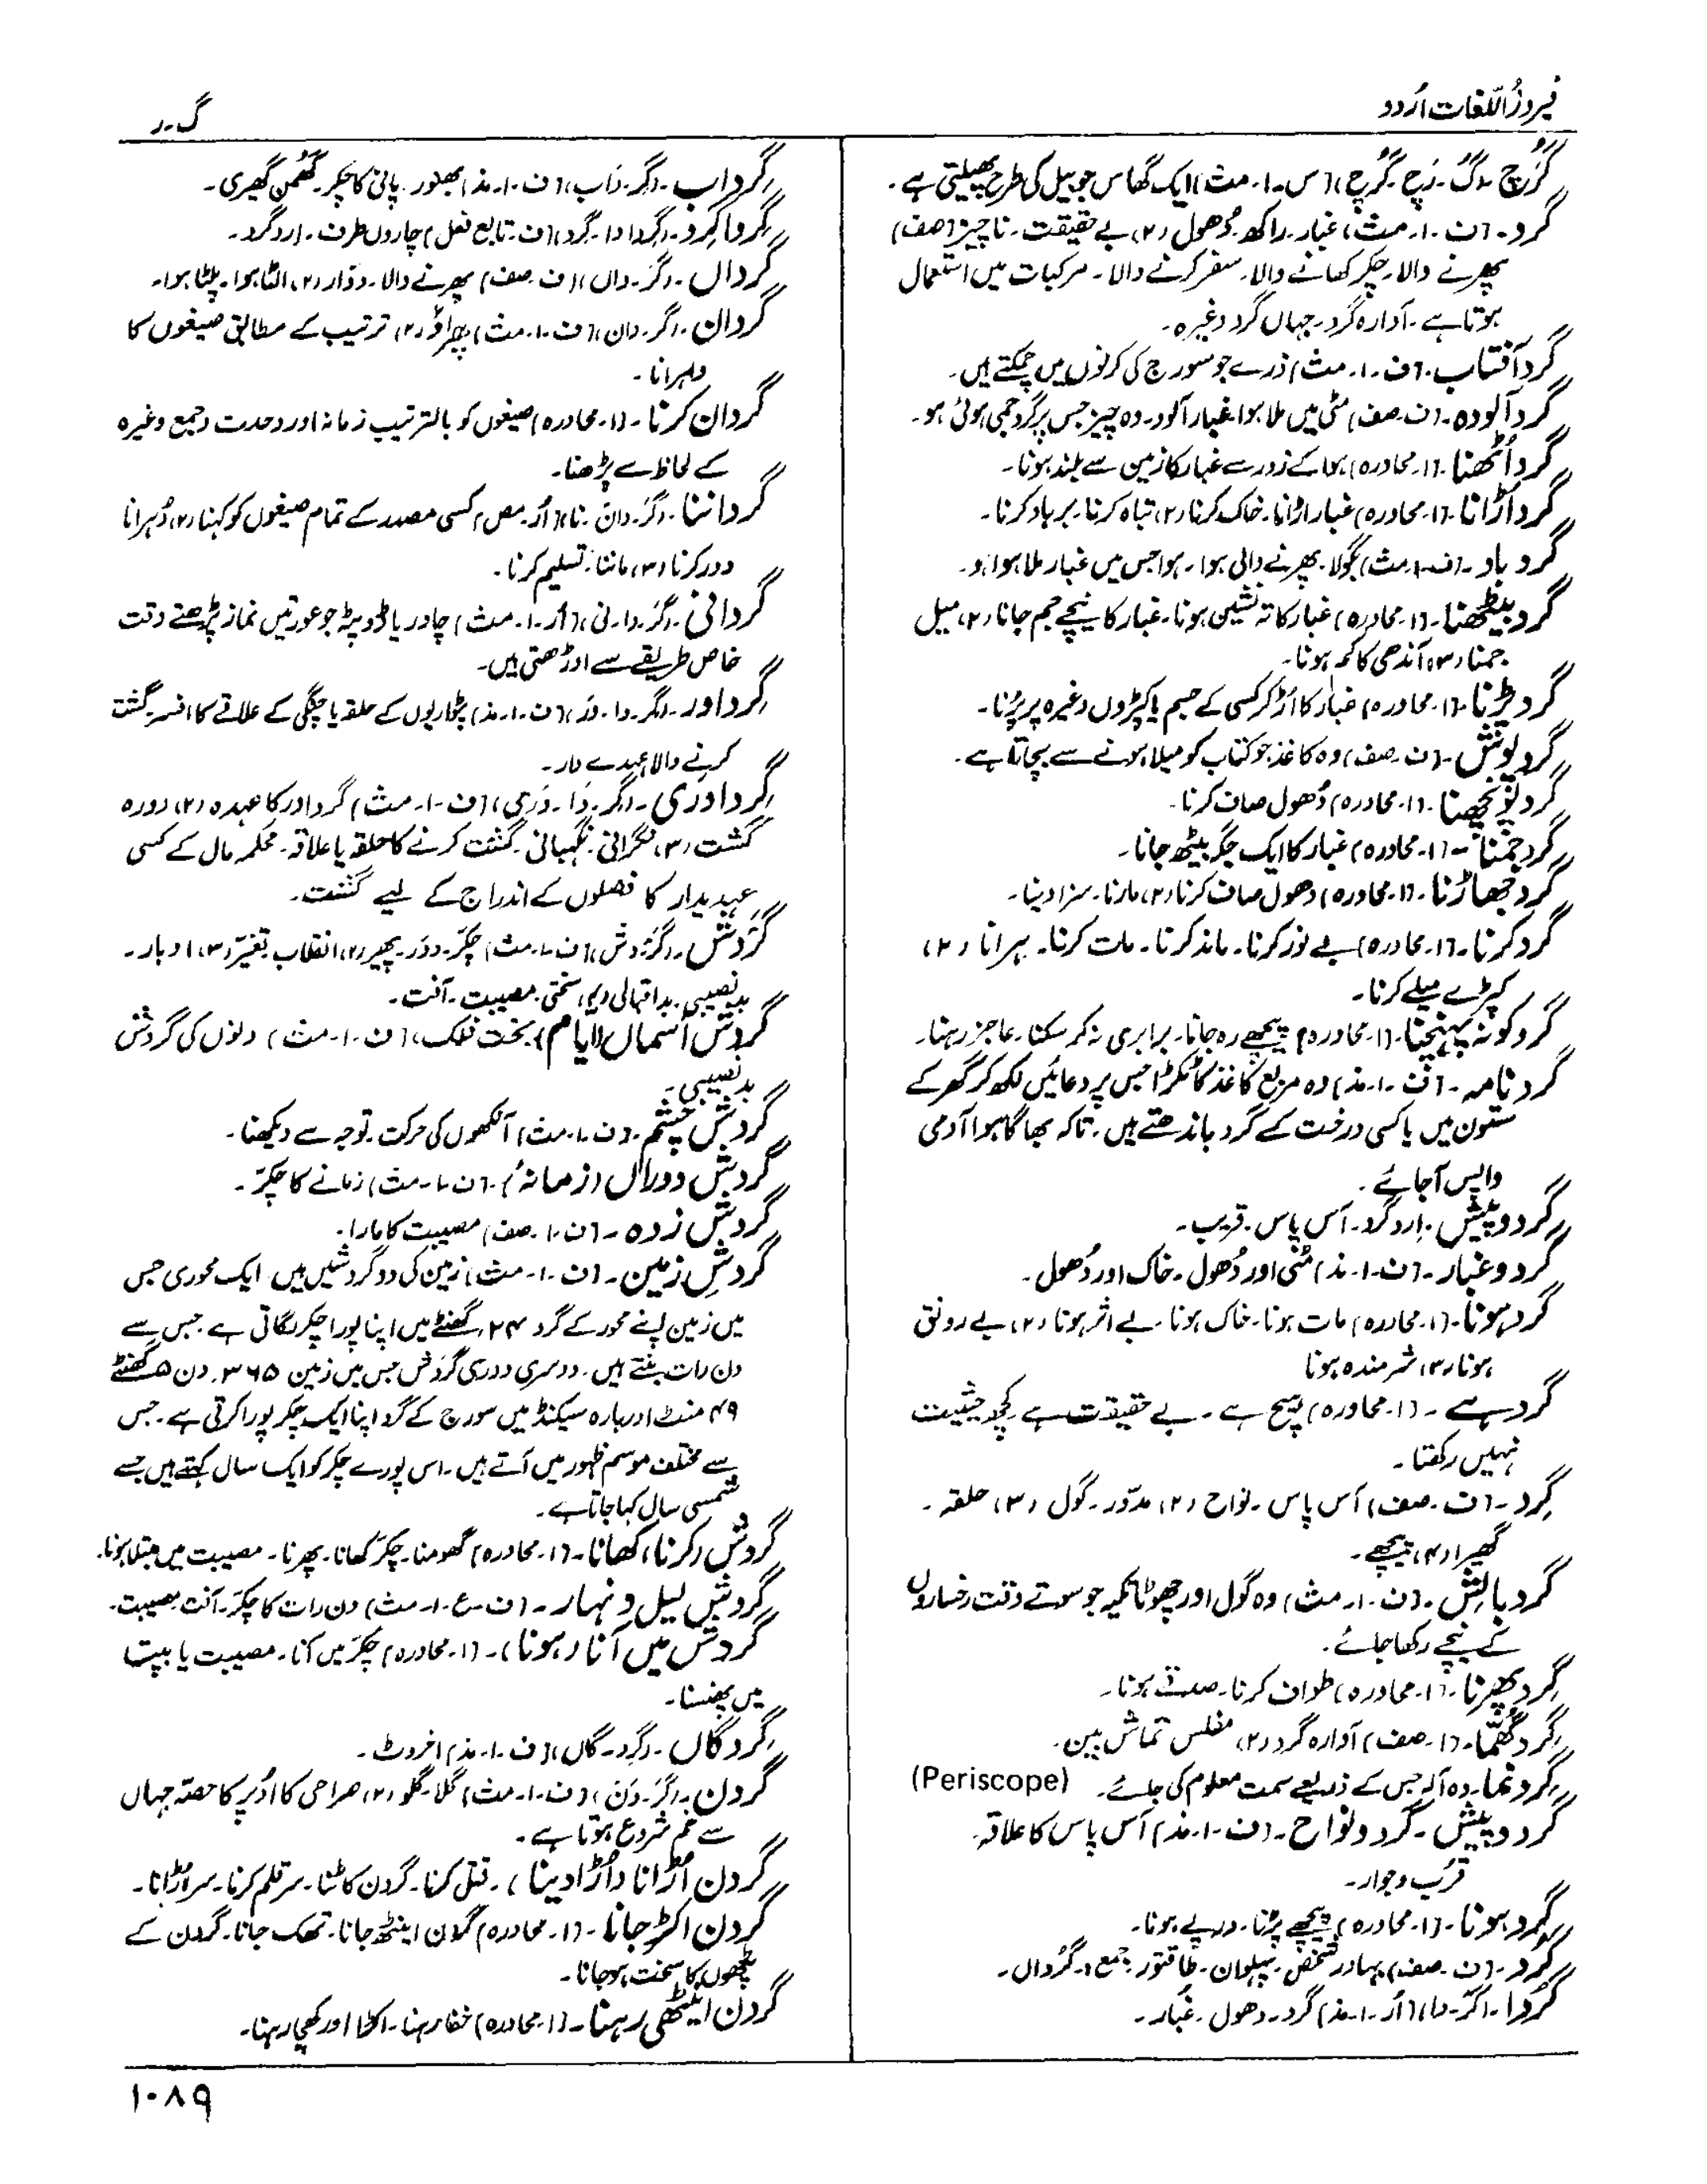 فیروزُاللّغات اُردو
گ۔ر
گُرُچ ۔ (گُ۔ رُچ۔ گُرُچ) (س۔ ا۔ مث) ایک گھاس جو بیل کی طرح پھیلتی ہے۔
گرد ۔ (ف۔ ا۔ مث) غبار۔ راکھ۔ دُھول (۲) بے حقیقت۔ ناچیز (صف)
پھرنے والا۔ چکر کھانے والا۔ سفر کرنے والا۔ مرکبات میں استعمال
ہوتا ہے۔ آوارہ گرد۔ جہاں گرد وغیرہ۔
گردِ آفتاب۔ (ف۔ ا۔ مث) ذرے جو سورج کی کرنوں میں چمکتے ہیں۔
گرد آلودہ۔ (ف۔ صف) مٹی میں ملا ہوا۔ غبار آلود۔ وہ چیز جس پر گرد جمی ہوئی ہو۔
گرد اُٹھنا۔ (ا۔ محاورہ) ہوا کے زور سے غبار کا زمین سے بلند ہونا۔
گرد اُڑانا۔ (ا۔ محاورہ) غبار اڑانا۔ خاک کرنا (۲) تباہ کرنا۔ برباد کرنا۔
گرد باد۔ (ف۔ ا۔ مث) بگولا۔ پھرنے والی ہوا۔ ہوا جس میں غبار ملا ہوا ہو۔
گرد بیٹھنا۔ (ا۔ محاورہ) غبار کا تہ نشین ہونا۔ غبار کا نیچے جم جانا (۲) میل
جمنا (۳) آندھی کا کم ہونا۔
گرد پڑنا۔ (ا۔ محاورہ) غبار کا اُڑ کر کسی کے جسم یا کپڑوں وغیرہ پر پڑنا۔
گرد پوش۔ (ف۔ صف) وہ کاغذ جو کتاب کو میلا ہونے سے بچاتا ہے۔
گرد پُونچھنا۔ (ا۔ محاورہ) دُھول صاف کرنا۔
گرد جمنا۔ (ا۔ محاورہ) غبار کا ایک جگہ بیٹھ جانا۔
گرد جھاڑنا۔ (ا۔ محاورہ) دھول صاف کرنا (۲) مارنا۔ سزا دینا۔
گرد کرنا۔ (ا۔ محاورہ) بے نور کرنا۔ ماند کرنا۔ مات کرنا۔ ہرانا (۲)
کپڑے میلے کرنا۔
گرد کو نہ پہنچنا۔ (ا۔ محاورہ) پیچھے رہ جانا۔ برابری نہ کر سکنا۔ عاجز رہنا۔
گرد نامہ۔ (ف۔ ا۔ مذ) وہ مربع کاغذ کا ٹکڑا جس پر دعائیں لکھ کر گھر کے
ستون میں یا کسی درخت کے گرد باندھتے ہیں۔ تاکہ بھاگا ہوا آدمی
واپس آجائے۔
گرد و پیش۔ اِرد گرد۔ آس پاس۔ قریب۔
گرد و غبار۔ (ف۔ ا۔ مذ) مٹی اور دُھول۔ خاک اور دُھول۔
گرد ہونا۔ (ا۔ محاورہ) مات ہونا۔ خاک ہونا۔ بے اثر ہونا (۲) بے رونق
ہونا (۳) شرمندہ ہونا
گرد ہے۔ (ا۔ محاورہ) ہیچ ہے۔ بے حقیقت ہے کچھ حیثیت
نہیں رکھتا۔
گِرد۔ (ف۔ صف) آس پاس۔ نواح (۲) مدوّر۔ گول (۳) حلقہ۔
گھیرا (۴) پیچھے۔
گرد بالِش۔ (ف۔ ا۔ مث) وہ گول اور چھوٹا تکیہ جو سوتے وقت رخساروں
کے نیچے رکھا جائے۔
گِرد پھرنا۔ (ا۔ محاورہ) طواف کرنا۔ صدقے ہونا۔
گِرد گُھمّا۔ (ا۔ صف) آوارہ گرد (۲) مفلس تماش بین۔
گِرد نُما۔ وہ آلہ جس کے ذریعے سمت معلوم کی جائے۔ (Periscope)
گرد و پیش۔ گرد و نواح۔ (ف۔ ا۔ مذ) آس پاس کا علاقہ۔
قرب و جوار۔
گِرد ہونا۔ (ا۔ محاورہ) پیچھے پڑنا۔ درپے ہونا۔
گُرد۔ (ف۔ صف) بہادر شخص۔ پہلوان۔ طاقتور۔ جمع: گُرداں۔
گَردا۔ (گَر۔ دا) (اُر۔ ا۔ مذ) گرد۔ دھول۔ غبار۔
گِرداب۔ (گِر۔ دَاب) (ف۔ ا۔ مذ) بھنور۔ پانی کا چکر۔ گُھمن گھیری۔
گِردا گِرد۔ (گِر۔ دا۔ گِرد) (ف۔ تابع فعل) چاروں طرف۔ اِرد گرد۔
گرداں۔ (گَر۔ داں) (ف۔ صف) پھرنے والا۔ دوّار (۲) الٹا ہوا۔ پلٹا ہوا۔
گردان۔ (گَر۔ دان) (ف۔ ا۔ مث) پھراؤ (۲) ترتیب کے مطابق صیغوں کا
دہرانا۔
گردان کرنا۔ (ا۔ محاورہ) صیغوں کو بالترتیب زمانہ اور وحدت و جمع وغیرہ
کے لحاظ سے پڑھنا۔
گرداننا۔ (گَر۔ دان۔ نا) (اُر۔ مص) کسی مصدر کے تمام صیغوں کو کہنا (۲) دُہرانا
دور کرنا (۳) ماننا۔ تسلیم کرنا۔
گردانی۔ (گَر۔ دا۔ نی) (اُر۔ ا۔ مث) چادر یا ڈوپٹہ جو عورتیں نماز پڑھتے وقت
خاص طریقے سے اوڑھتی ہیں۔
گِرداور۔ (گِر۔ دا۔ وَر) (ف۔ ا۔ مذ) پٹواریوں کے حلقہ یا چنگی کے علاقے کا افسر۔ گشت
کرنے والا عہدے دار۔
گِرداوَری۔ (گِر۔ دَا۔ وَری) (ف۔ ا۔ مث) گرداور کا عہدہ (۲) دورہ
گشت (۳) نگرانی۔ نگہبانی۔ گشت کرنے کا حلقہ یا علاقہ۔ محکمہ مال کے کسی
عہدیدار کا فصلوں کے اندراج کے لیے گشت۔
گَردش۔ (گَر۔ دش) (ف۔ ا۔ مث) چکّر۔ دَور۔ پھیر (۲) انقلاب۔ تغیّر (۳) ادبار۔
بدنصیبی۔ بداقبالی (۴) سختی۔ مصیبت۔ آفت۔
گردشِ آسماں (ایام) بخت فلک) (ف۔ ا۔ مث) دنوں کی گردش
بدنصیبی۔
گردشِ چشم۔ (ف۔ ا۔ مث) آنکھوں کی حرکت۔ توجہ سے دیکھنا۔
گردشِ دوراں (زمانہ)۔ (ف۔ ا۔ مث) زمانے کا چکّر۔
گردش زدہ۔ (ف۔ ا۔ صف) مصیبت کا مارا۔
گردشِ زمین۔ (ف۔ ا۔ مث) زمین کی دو گردشیں ہیں ایک محوری جس
میں زمین اپنے محور کے گرد ۲۴ گھنٹے میں اپنا پورا چکر لگاتی ہے۔ جس سے
دن رات بنتے ہیں۔ دوسری دوری گردش جس میں زمین ۳۶۵ دن ۵ گھنٹے
۴۹ منٹ اور بارہ سیکنڈ میں سورج کے گرد اپنا ایک چکر پورا کرتی ہے۔ جس
سے مختلف موسم ظہور میں آتے ہیں۔ اس پورے چکر کو ایک سال کہتے ہیں جسے
شمسی سال کہا جاتا ہے۔
گردش (کرنا) کھانا۔ (ا۔ محاورہ) گھومنا۔ چکّر کھانا۔ پھرنا۔ مصیبت میں مبتلا ہونا۔
گردشِ لیل و نہار۔ (ف۔ ع۔ ا۔ مث) دن رات کا چکّر۔ آفت۔ مصیبت۔
گردش میں آنا (ہونا)۔ (ا۔ محاورہ) چکّر میں آنا۔ مصیبت یا بپتا
میں پھنسنا۔
گِردگاں۔ (گِرد۔ گاں) (ف۔ ا۔ مذ) اخروٹ۔
گردن۔ (گَر۔ دَن) (ف۔ ا۔ مث) گلا۔ گلو (۲) صراحی کا اُوپر کا حصّہ جہاں
سے خم شروع ہوتا ہے۔
گردن اُڑانا (اُڑا دینا)۔ قتل کرنا۔ گردن کاٹنا۔ سر قلم کرنا۔ سر اُڑانا۔
گردن اکڑ جانا۔ (ا۔ محاورہ) گردن اینٹھ جانا۔ تھک جانا۔ گردن کے
پٹھوں کا سخت ہو جانا۔
گردن اینٹھی رہنا۔ (ا۔ محاورہ) خفا رہنا۔ اکڑا اور کھچا رہنا۔
۱۰۸۹